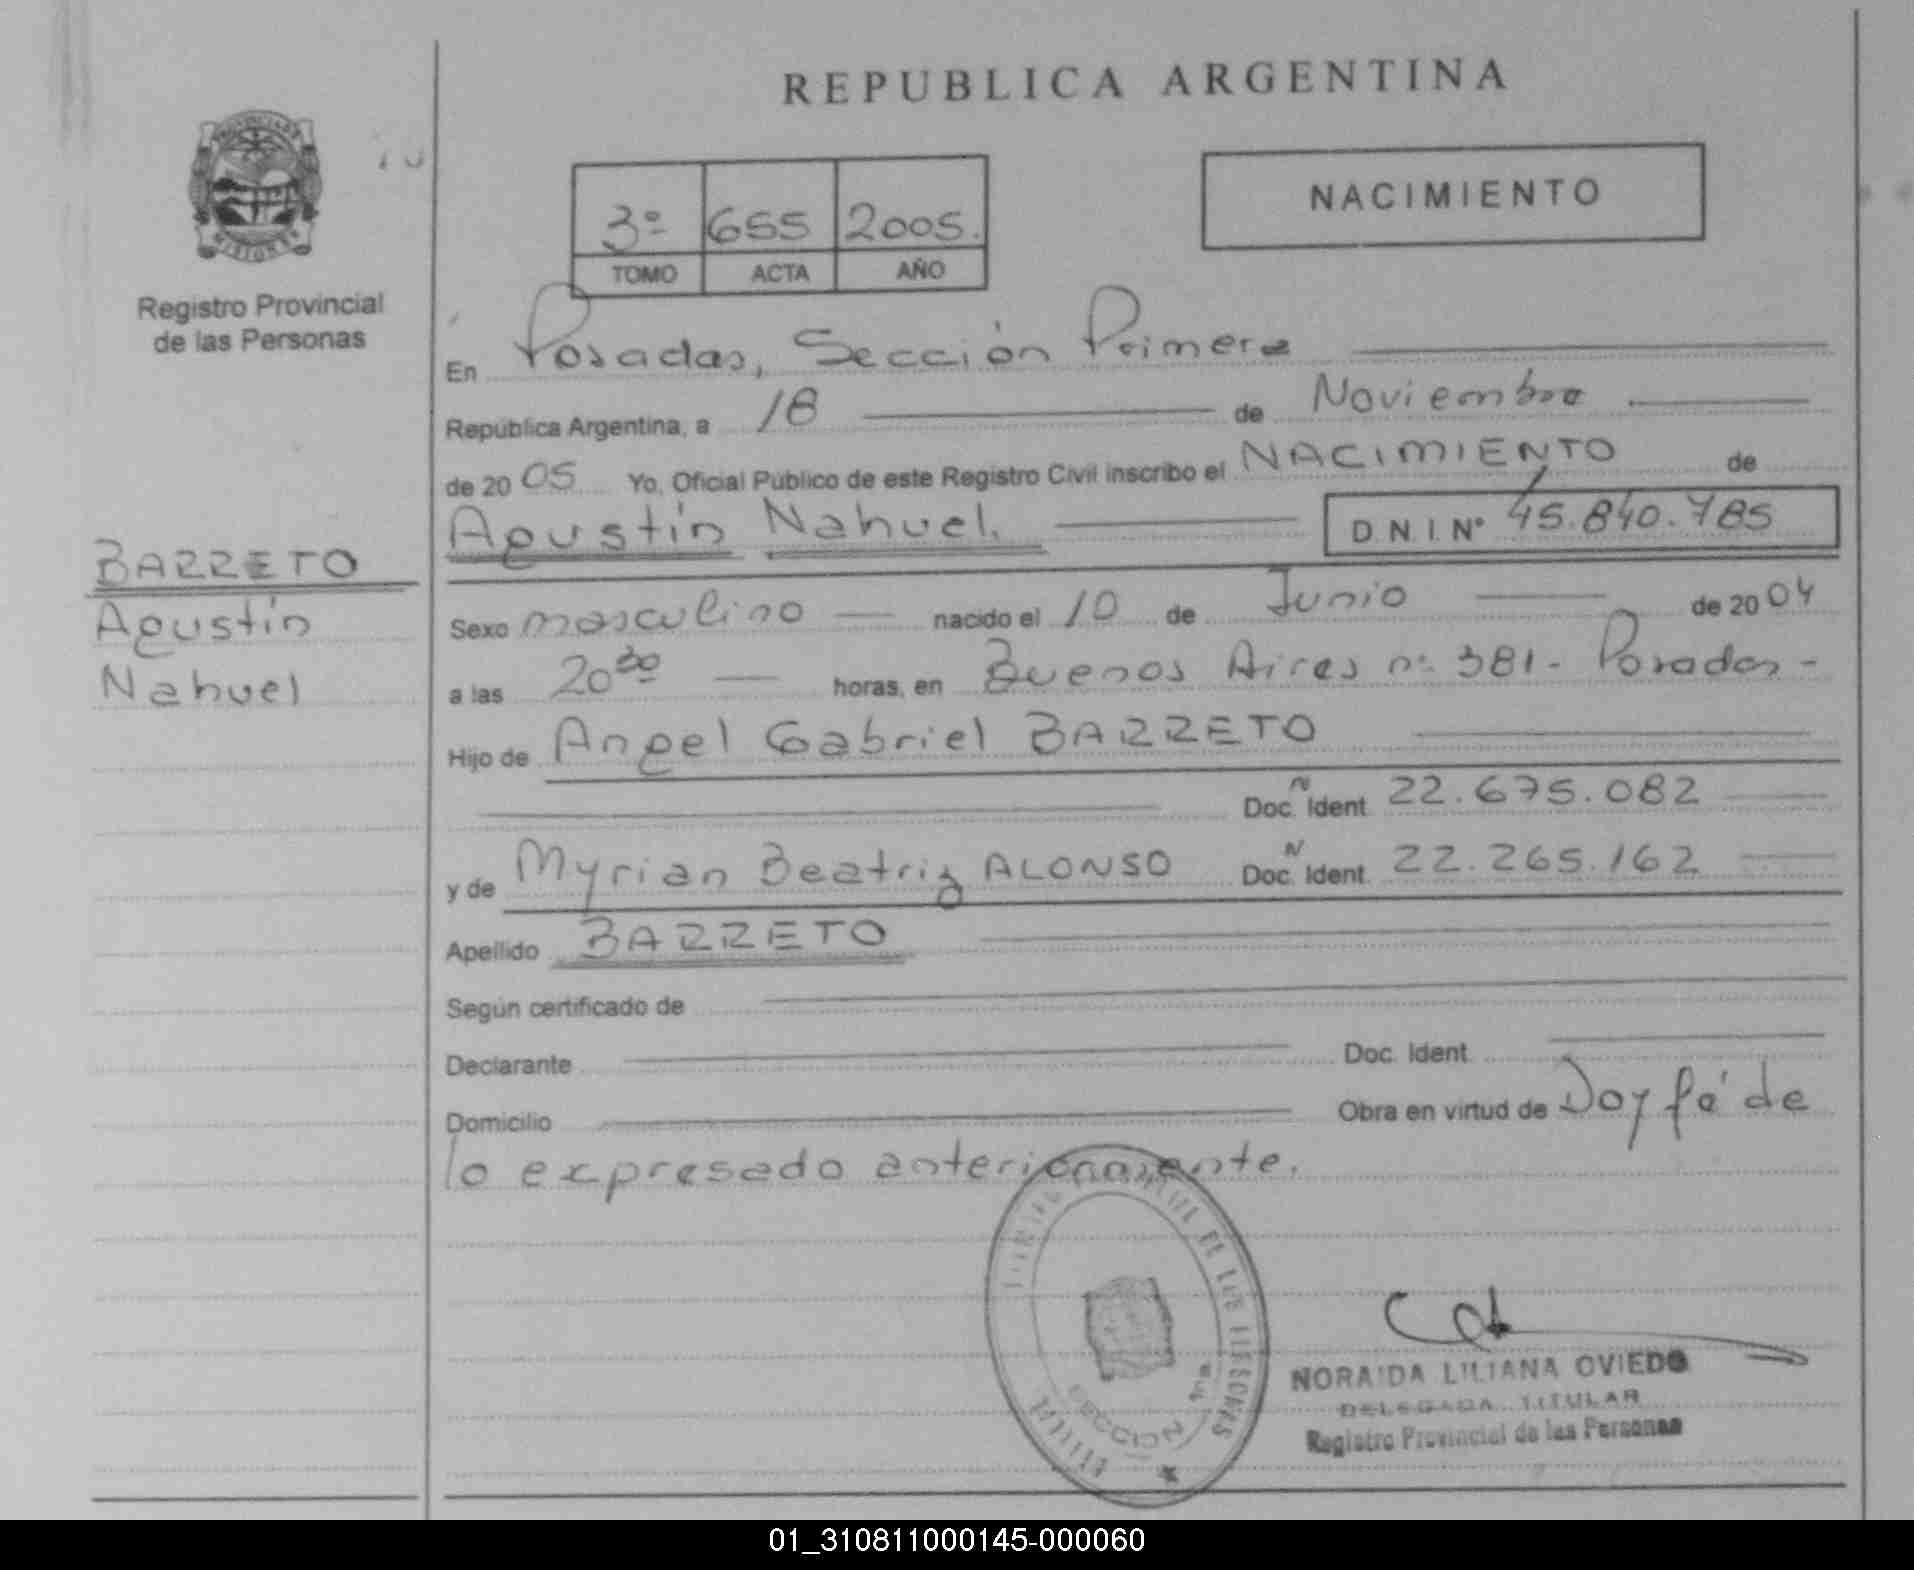 REPUBLICA ARGENTINA
PROVINCIA DE
MISIONES
Registro Provincial
de las Personas
3º 655 2005.
TOMO ACTA AÑO
NACIMIENTO
En Posadas, Sección Primera
República Argentina, a 18 de Noviembre
de 2005 Yo, Oficial Público de este Registro Civil inscribo el NACIMIENTO de
Agustín Nahuel. D.N.I.Nº 45.840.785
BARRETO
Agustín
Nahuel
Sexo masculino nacido el 10 de Junio de 2004
a las 20 30 horas, en Buenos Aires nº 381- Posadas-
Hijo de Angel Gabriel BARRETO
Doc. N Ident. 22.675.082
y de Myrian Beatriz ALONSO Doc. N Ident. 22.265.162
Apellido BARRETO
Según certificado de
Declarante Doc. Ident.
Domicilio Obra en virtud de Doy fé de
lo expresado anteriormente.
SECCION 1ra
NORAIDA LILIANA OVIEDO
DELEGADA TITULAR
Registro Provincial de las Personas
01_310811000145-000060